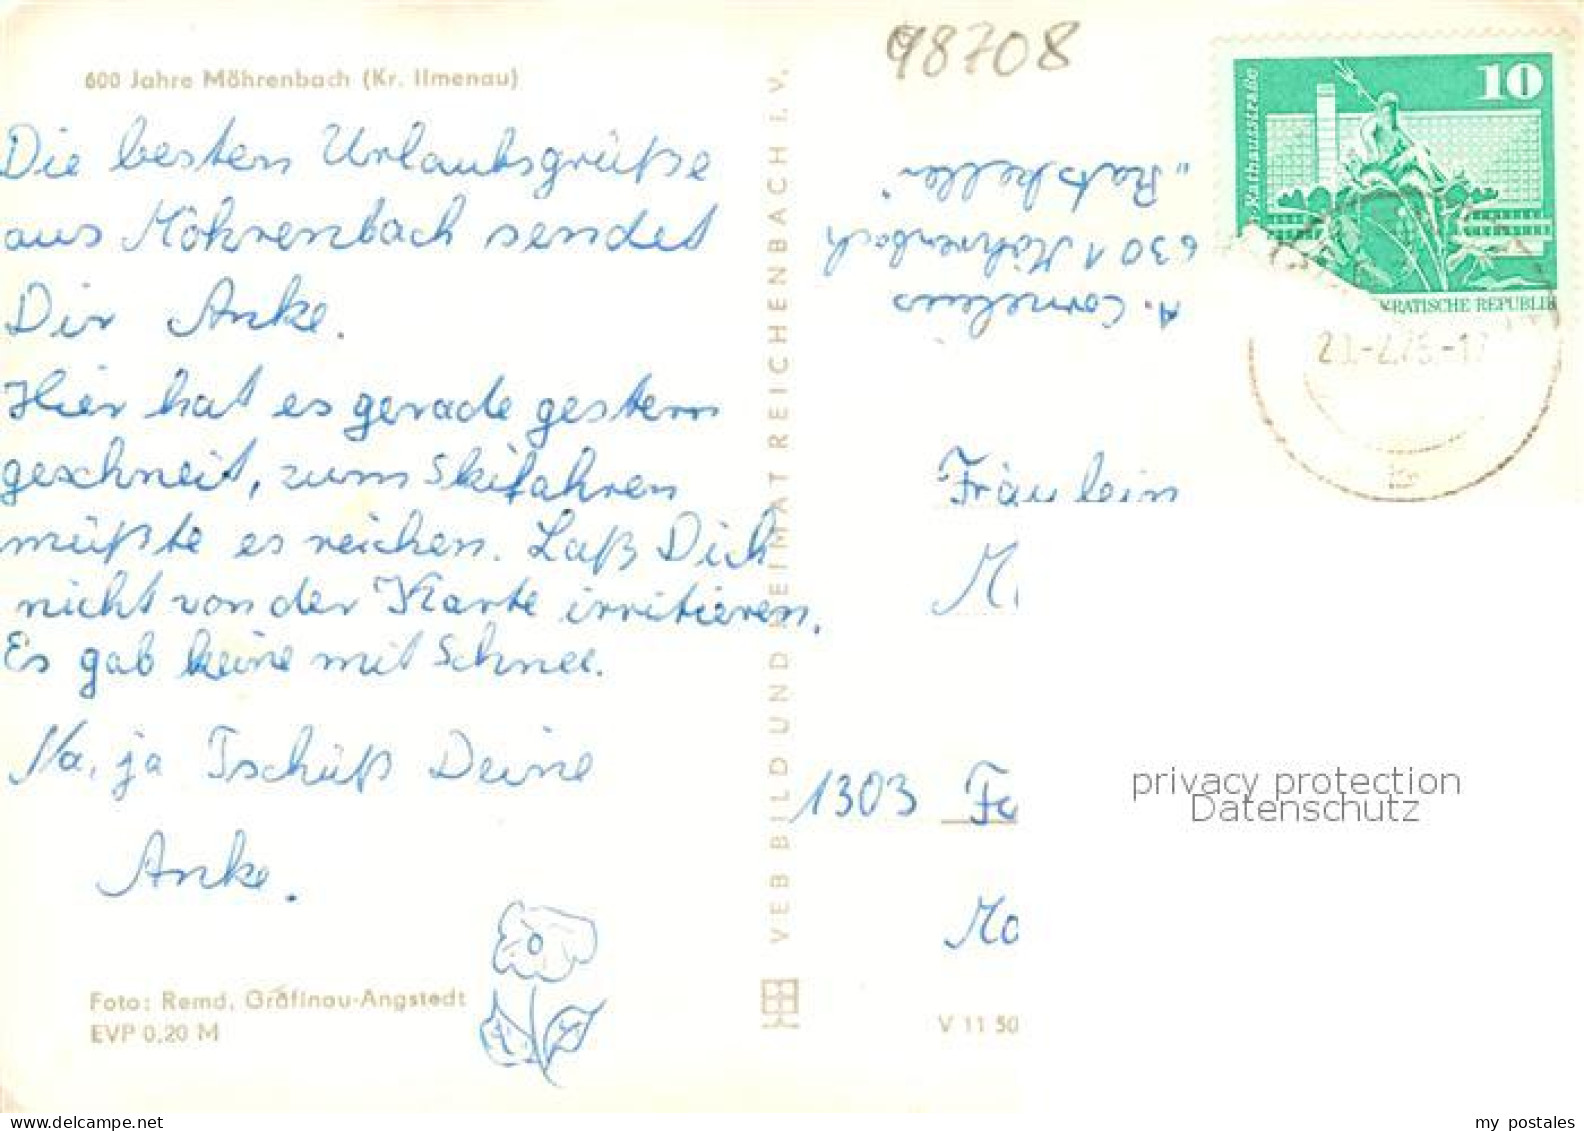 600 Jahre Möhrenbach (Kr. Ilmenau)
Die besten Urlaubsgrüße
aus Möhrenbach sendet
Dir Anke.
Hier hat es gerade gestern
geschneit, zum Skifahren
müßte es reichen. Laß Dich
nicht von der Karte irritieren.
Es gab keine mit Schnee.
Na, ja Tschüß Deine
Anke.
Foto: Remd, Gräfinau-Angstedt
EVP 0,20 M
VEB BILD UND HEIMAT REICHENBACH I. V.
98708
A. Cornelius
6301 Möhrenbach
"Ratskeller"
10
Rathausstraße
KRATISCHE REPUBLIK
Fräulein
1303
V 11 50
privacy protection
Datenschutz
my postales